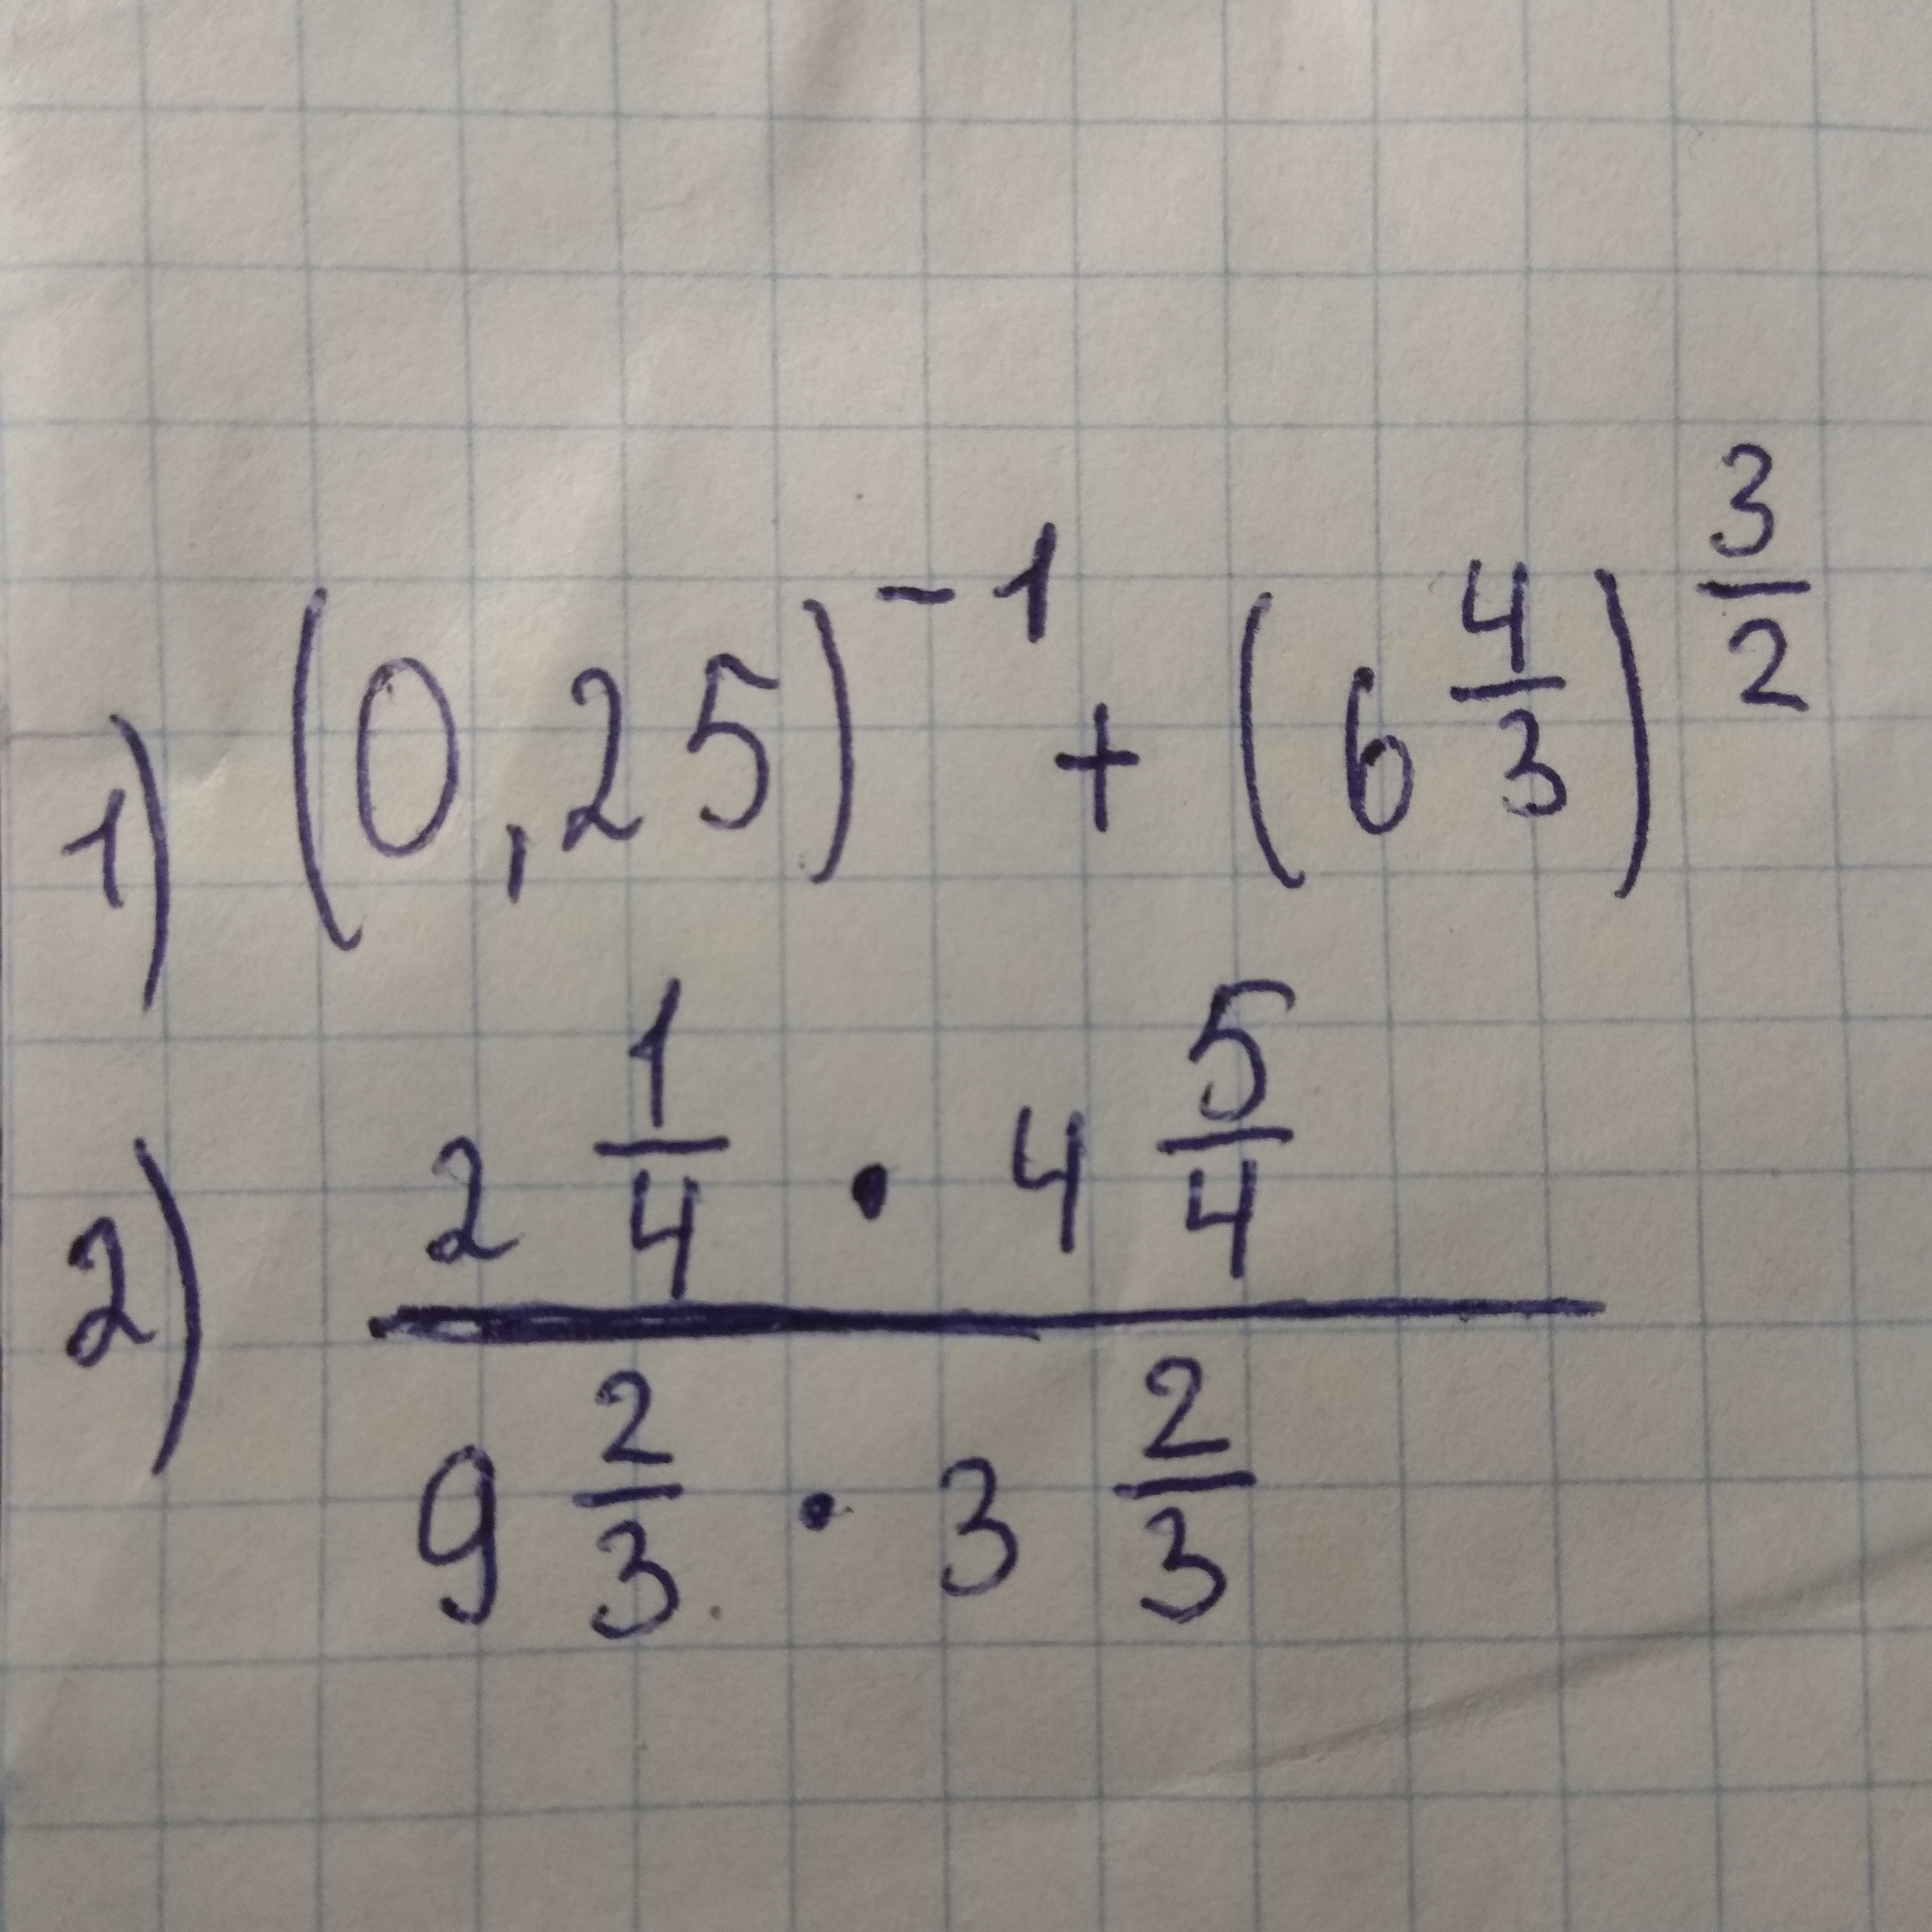 1) (0,25)^{-1} + (6^{\frac{4}{3}})^{\frac{3}{2}}
2) \frac{2^{\frac{1}{4}} \cdot 4^{\frac{5}{4}}}{9^{\frac{2}{3}} \cdot 3^{\frac{2}{3}}}